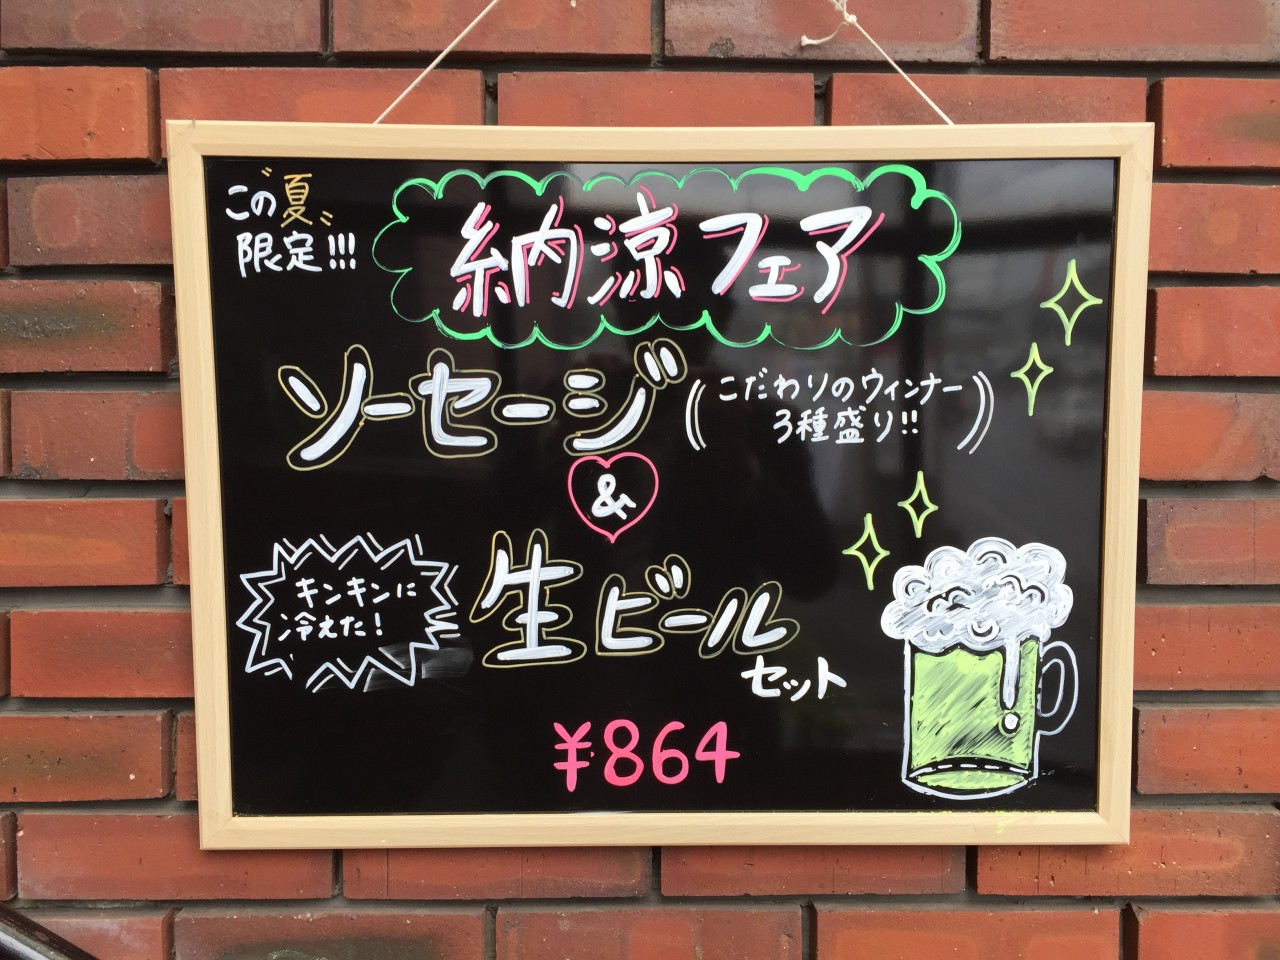 この夏
限定!!!
納涼フェア
ソーセージ
(こだわりのウィンナー
3種盛り!!)
&
キンキンに
冷えた!
生ビール
セット
¥864